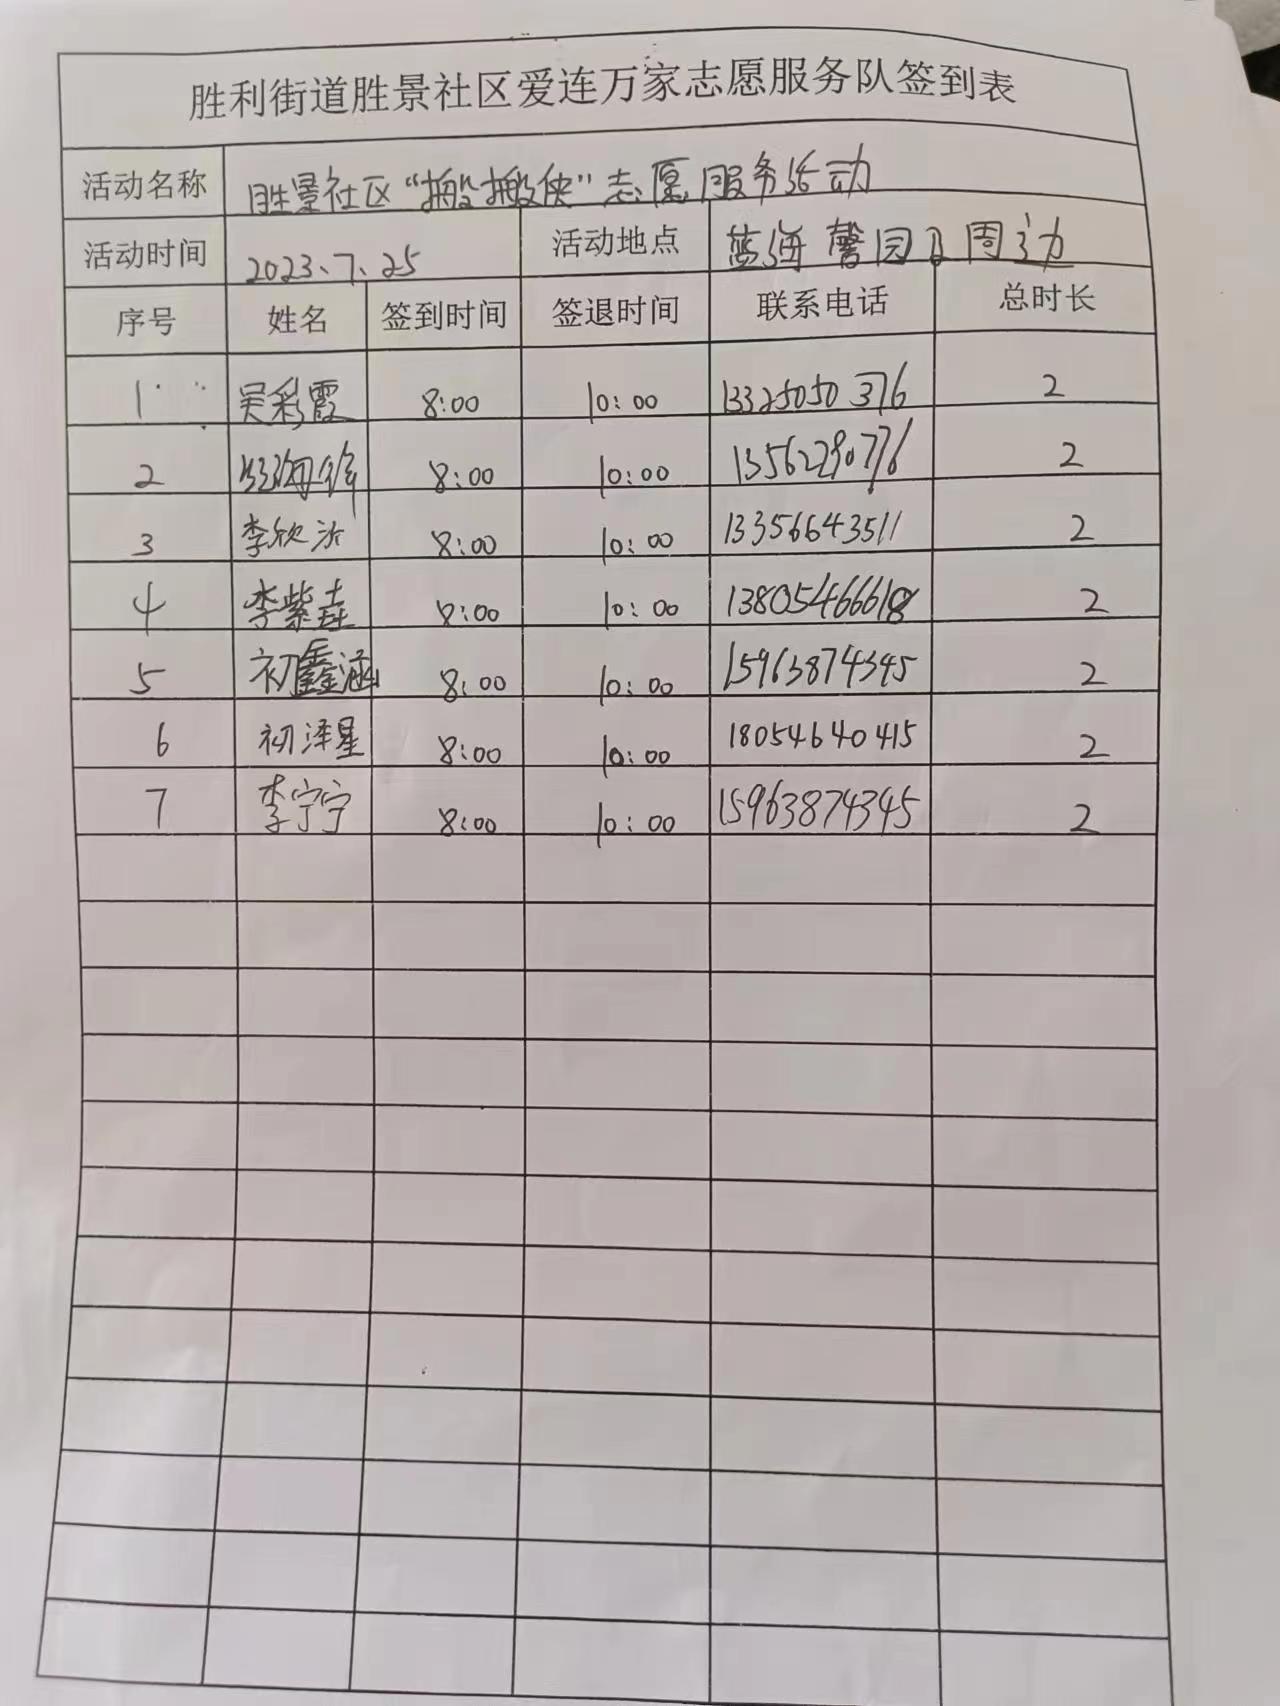 胜利街道胜景社区爱连万家志愿服务队签到表
活动名称 胜景社区“搬搬侠”志愿服务活动
活动时间 2023、7、25 活动地点 蓝海馨园及周边
序号 姓名 签到时间 签退时间 联系电话 总时长
1 吴彩霞 8:00 10:00 13325050376 2
2 8:00 10:00 13562290776 2
3 李欣 8:00 10:00 13356643511 2
4 李紫垚 8:00 10:00 13805466618 2
5 初鑫涵 8:00 10:00 15963874345 2
6 初泽星 8:00 10:00 18054640415 2
7 李宁宁 8:00 10:00 15963874345 2